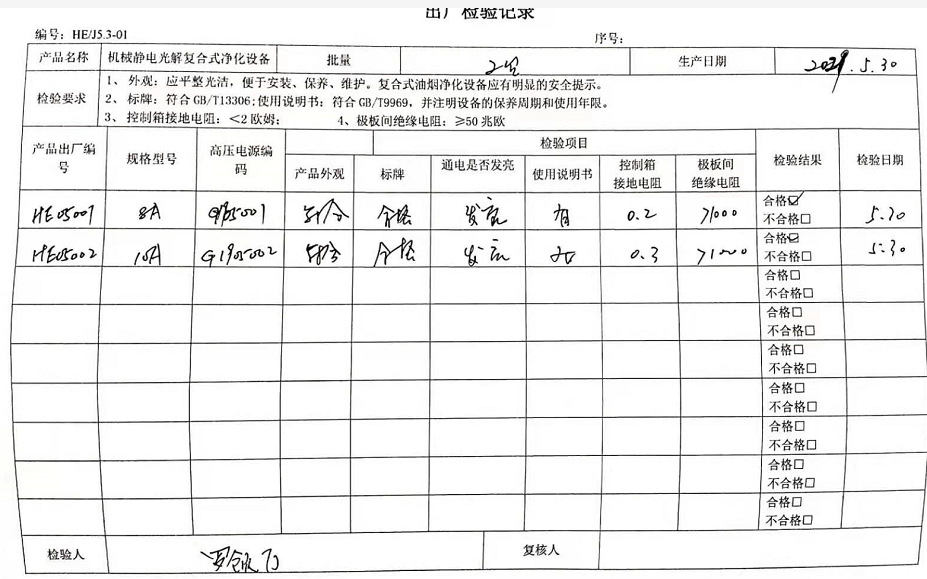 出厂检验记录
编号：HE/J5.3-01 序号：
产品名称 机械静电光解复合式净化设备 批量 2台 生产日期 2021.5.30
检验要求
1、外观：应平整光洁，便于安装、保养、维护。复合式油烟净化设备应有明显的安全提示。
2、标牌：符合GB/T13306;使用说明书：符合GB/T9969，并注明设备的保养周期和使用年限。
3、控制箱接地电阻：＜2欧姆； 4、极板间绝缘电阻：≥50兆欧
产品出厂编号 规格型号 高压电源编码 检验项目 检验结果 检验日期
产品外观 标牌 通电是否发亮 使用说明书 控制箱接地电阻 极板间绝缘电阻
HE05001 8A 合格 发亮 有 0.2 >1000 合格☑ 5.30
不合格□
HE05002 10A G1905002 合格 发亮 0.3 >1000 合格☑ 5.30
不合格□
合格□
不合格□
合格□
不合格□
合格□
不合格□
合格□
不合格□
合格□
不合格□
合格□
不合格□
合格□
不合格□
检验人 复核人